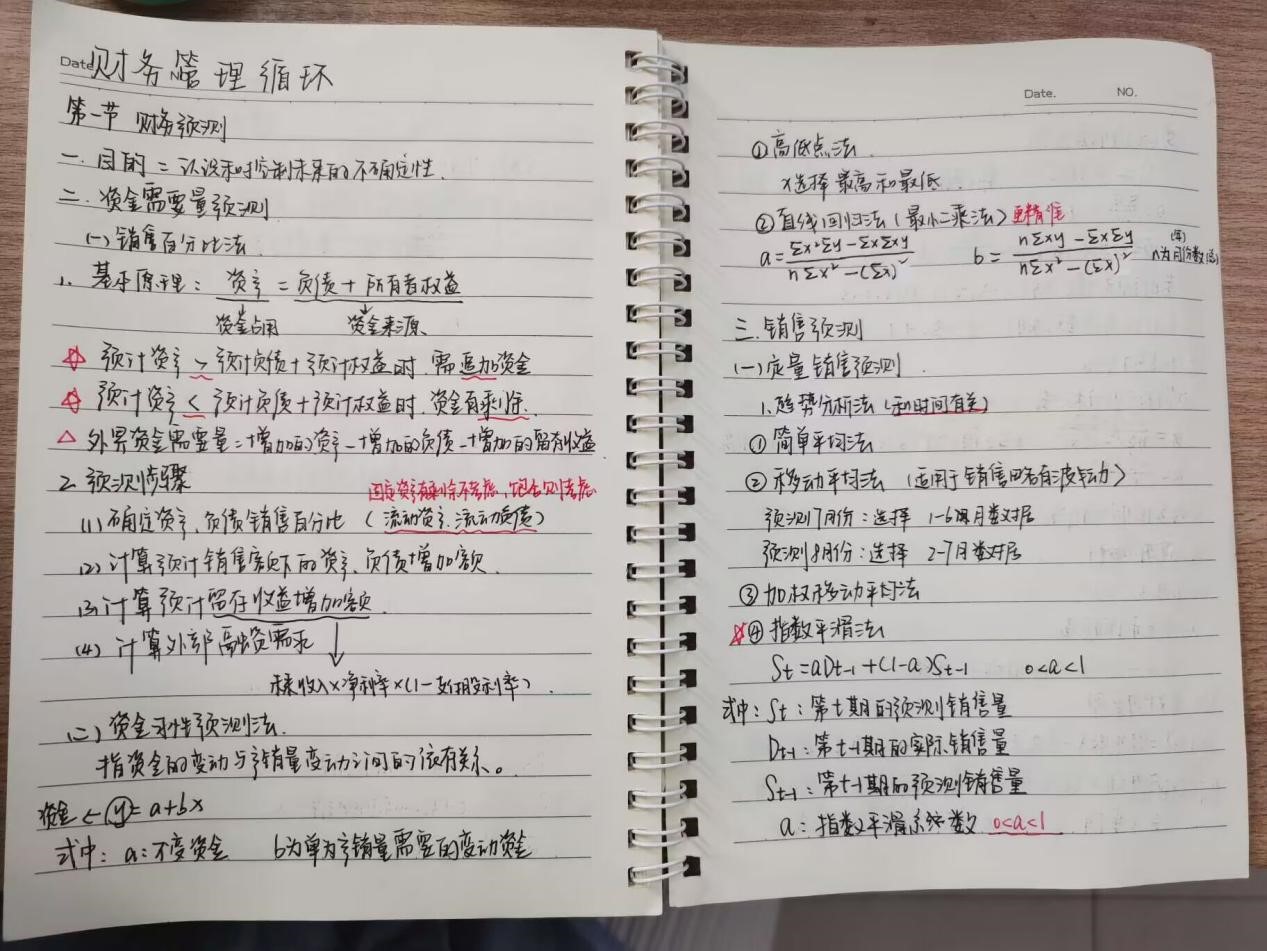 Date
NO.
财务管理循环
第一节 财务预测
一. 目的 = 认识和控制未来的不确定性.
二. 资金需要量预测
(一) 销售百分比法
1. 基本原理: 资产 = 负债 + 所有者权益
资金占用 资金来源
☆ 预计资产 > 预计负债 + 预计权益时 需追加资金
☆ 预计资产 < 预计负债 + 预计权益时. 资金有剩余.
△ 外界资金需要量 = 增加的资产 - 增加的负债 - 增加的留存收益
2. 预测步骤
固定资产有剩余不考虑, 饱和则考虑
(1) 确定资产、负债销售百分比 (流动资产、流动负债)
(2) 计算预计销售额下的资产、负债增加额.
(3) 计算预计留存收益增加额.
(4) 计算外部融资需求
×净利率×(1-支付股利率).
(二) 资金习性预测法.
指资金的变动与产销量变动之间的依存关系。
资金 ← y = a + bx
式中: a: 不变资金 b为单位产销量需要的变动资金
Date. NO.
① 高低点法.
x选择最高和最低.
② 直线回归法 (最小二乘法) 更精准
a = Σx²Σy - ΣxΣxy / nΣx² - (Σx)² b = nΣxy - ΣxΣy / nΣx² - (Σx)² n为月份数(年)
三. 销售预测
(一) 定量销售预测
1. 趋势分析法 (和时间有关)
① 简单平均法
② 移动平均法 (适用于销售略有波动)
预测7月份: 选择 1-6月数据
预测8月份: 选择 2-7月数据
③ 加权移动平均法
☆④ 指数平滑法
St = aDt-1 + (1-a)St-1 0<a<1
式中: St: 第t期的预测销售量
Dt-1: 第t-1期的实际销售量
St-1: 第t-1期的预测销售量
a: 指数平滑系数 0<a<1